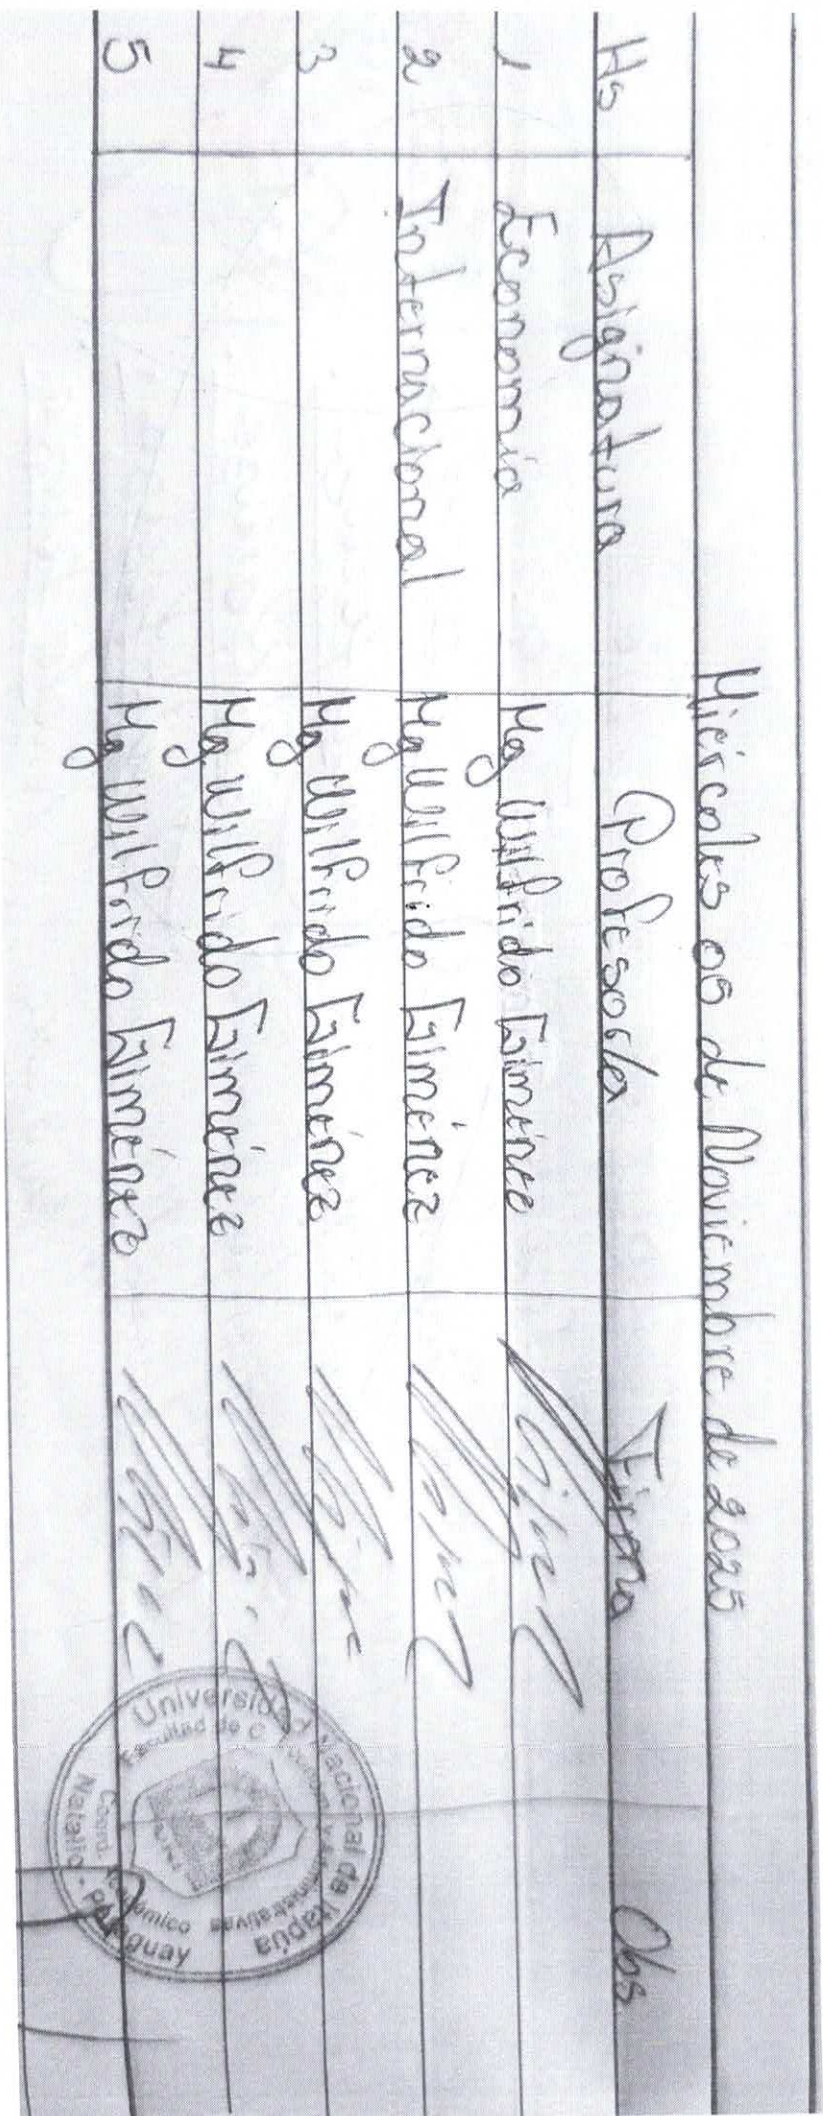 Miércoles 05 de Noviembre de 2025
Hs Asignatura Profesor/a Firma Obs
1 Economía Mg Wilfrido Giménez
2 Internacional Mg Wilfrido Giménez
3 Mg Wilfrido Giménez
4 Mg Wilfrido Giménez
5 Mg Wilfrido Giménez
Universidad Nacional de Itapúa
Facultad de C. y Administrativas
Coord. Académico
Natalio - Paraguay